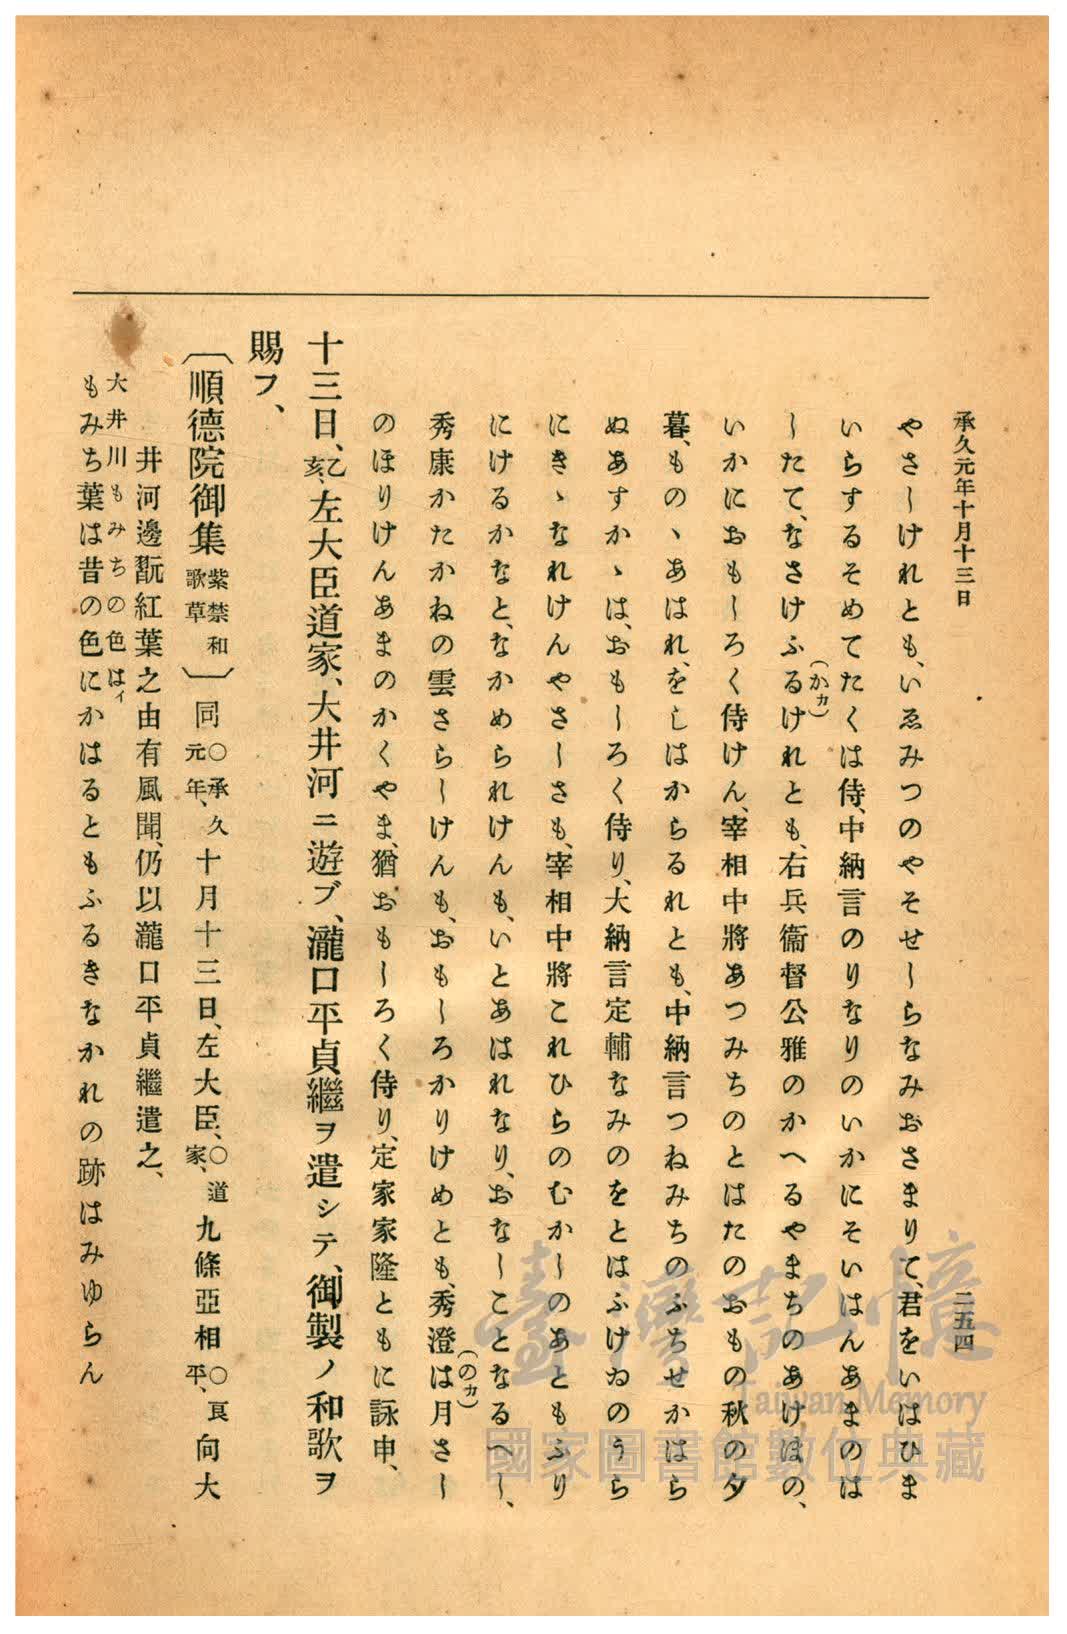 承久元年十月十三日
二五四
やさしけれとも、いゑみつのやそせしらなみおさまりて、君をいはひま
いらするそめてたくは侍、中納言のりなりのいかにそいはんあまのは
(かカ)
したて、なさけふるけれとも、右兵衞督公雅のかへるやまちのあけほの、
いかにおもしろく侍けん、宰相中將あつみちのとはたのおもの秋の夕
暮、ものゝあはれ、をしはからるれとも、中納言つねみちのふちせかはら
ぬあすかゝは、おもしろく侍り、大納言定輔なみのをとはふけゐのうら
にきゝなれけんやさしさも、宰相中將これひらのむかしのあともふり
にけるかなと、なかめられけんも、いとあはれなり、おなしことなるへし、
(のカ)
秀康かたかねの雲さらしけんも、おもしろかりけめとも、秀澄は月さし
のほりけんあまのかくやま、猶おもしろく侍り、定家家隆ともに詠申、
十三日、乙亥、左大臣道家、大井河ニ遊ブ、瀧口平貞繼ヲ遣シテ、御製ノ和歌ヲ
賜フ、
〔順德院御集紫禁和歌草〕同○承久元年、十月十三日、左大臣、○道家、九條亞相○良平、向大
井河邊翫紅葉之由有風聞、仍以瀧口平貞繼遣之、
大井川もみちの色はィ
もみち葉は昔の色にかはるともふるきなかれの跡はみゆらん
臺灣記憶
Taiwan Memory
國家圖書館數位典藏